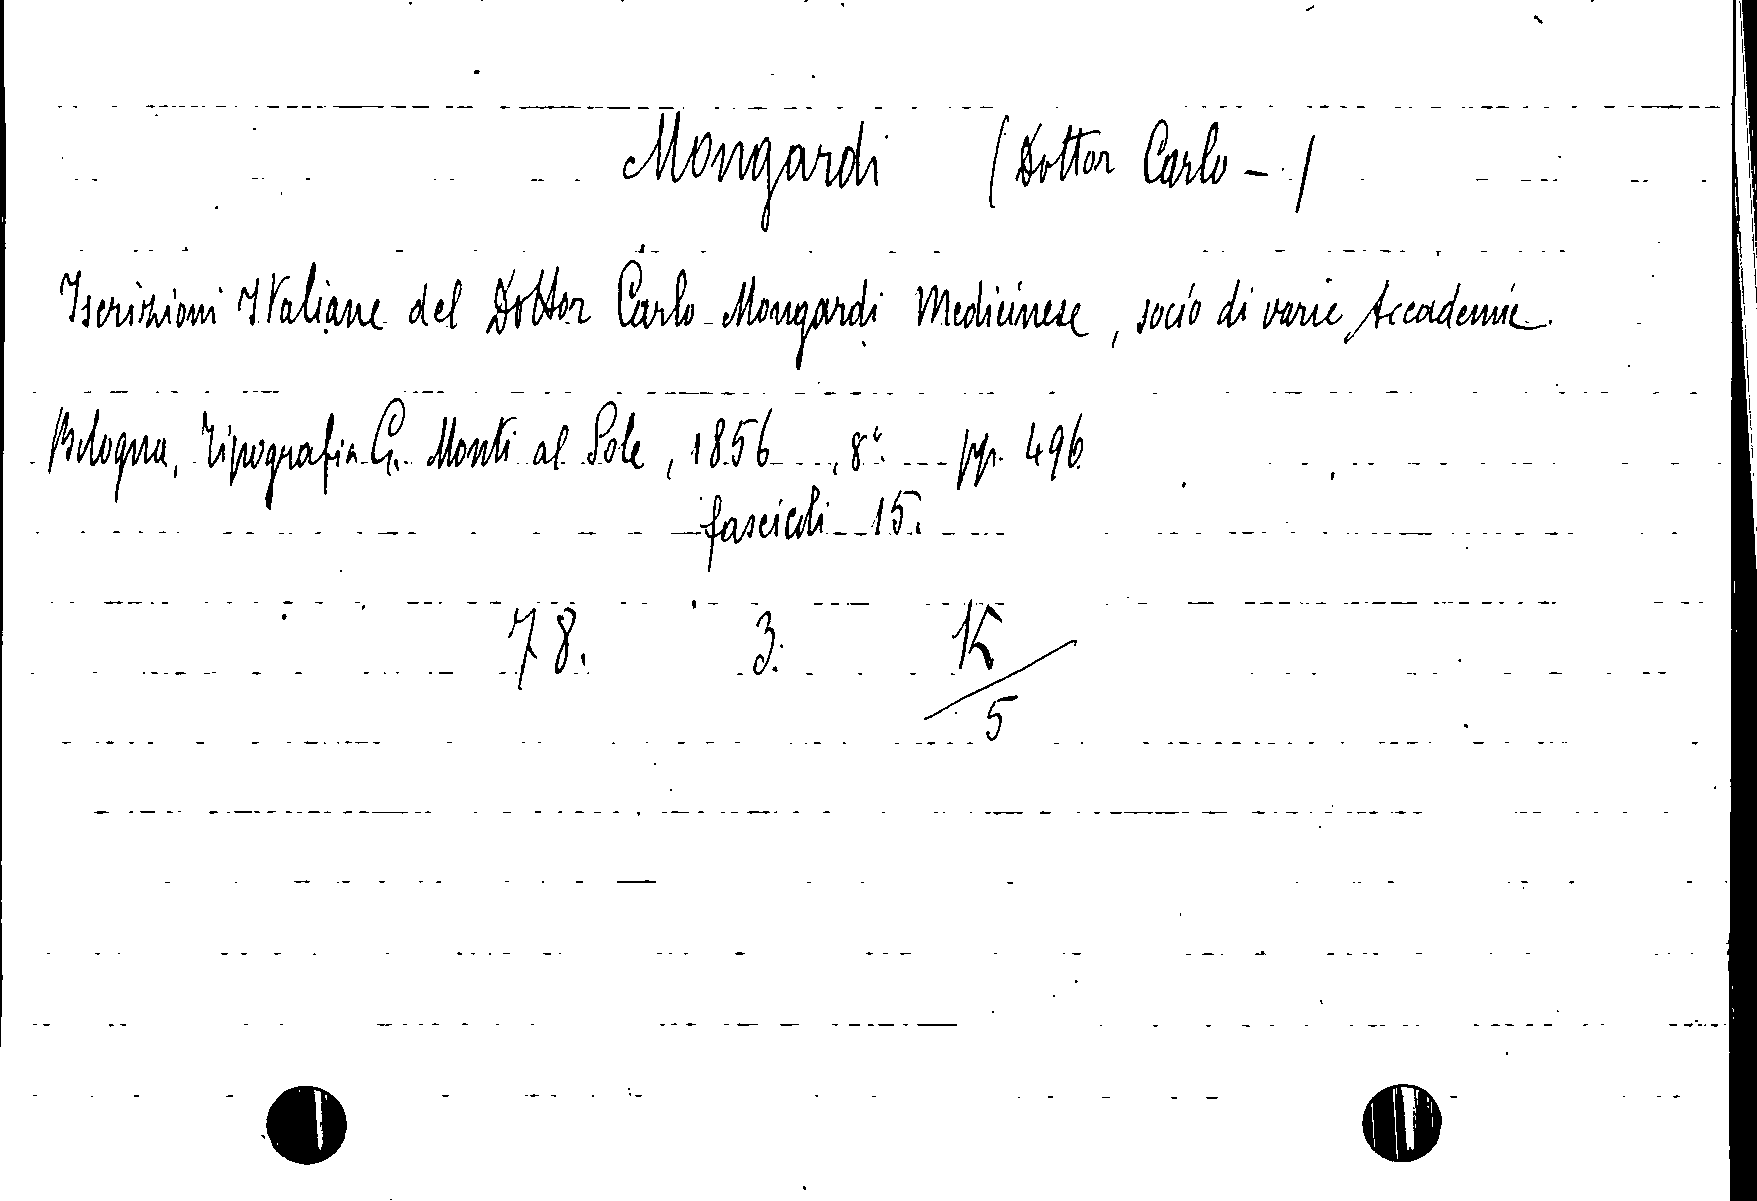 Mongardi (Dottor Carlo - )
Iscrizioni Italiane del Dottor Carlo Mongardi Medicinese, socio di varie Accademie.
Bologna, Tipografia G. Monti al Sole, 1856, 8°. pp. 496
fascicoli 15.
78. 3. K/5